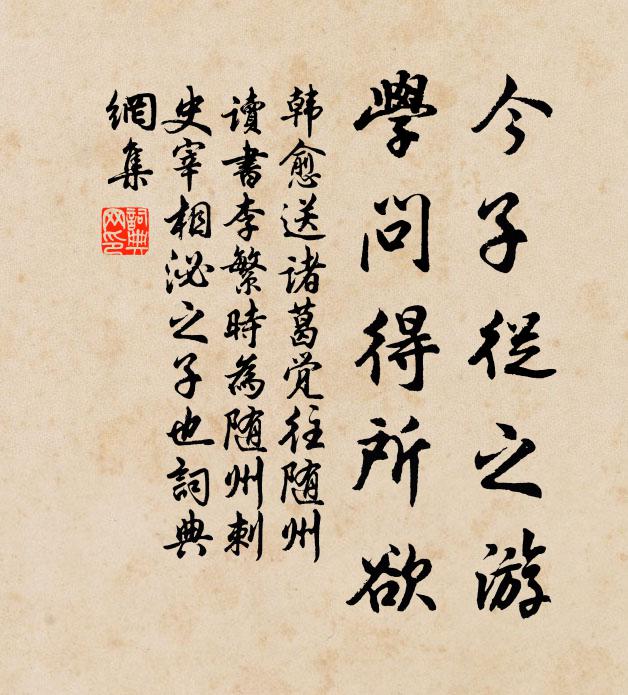 今子從之游
學問得所欲
韩愈送诸葛觉往随州
讀書李繁時為随州刺
史宰相泌之子也詞典
網集
詞典
网印